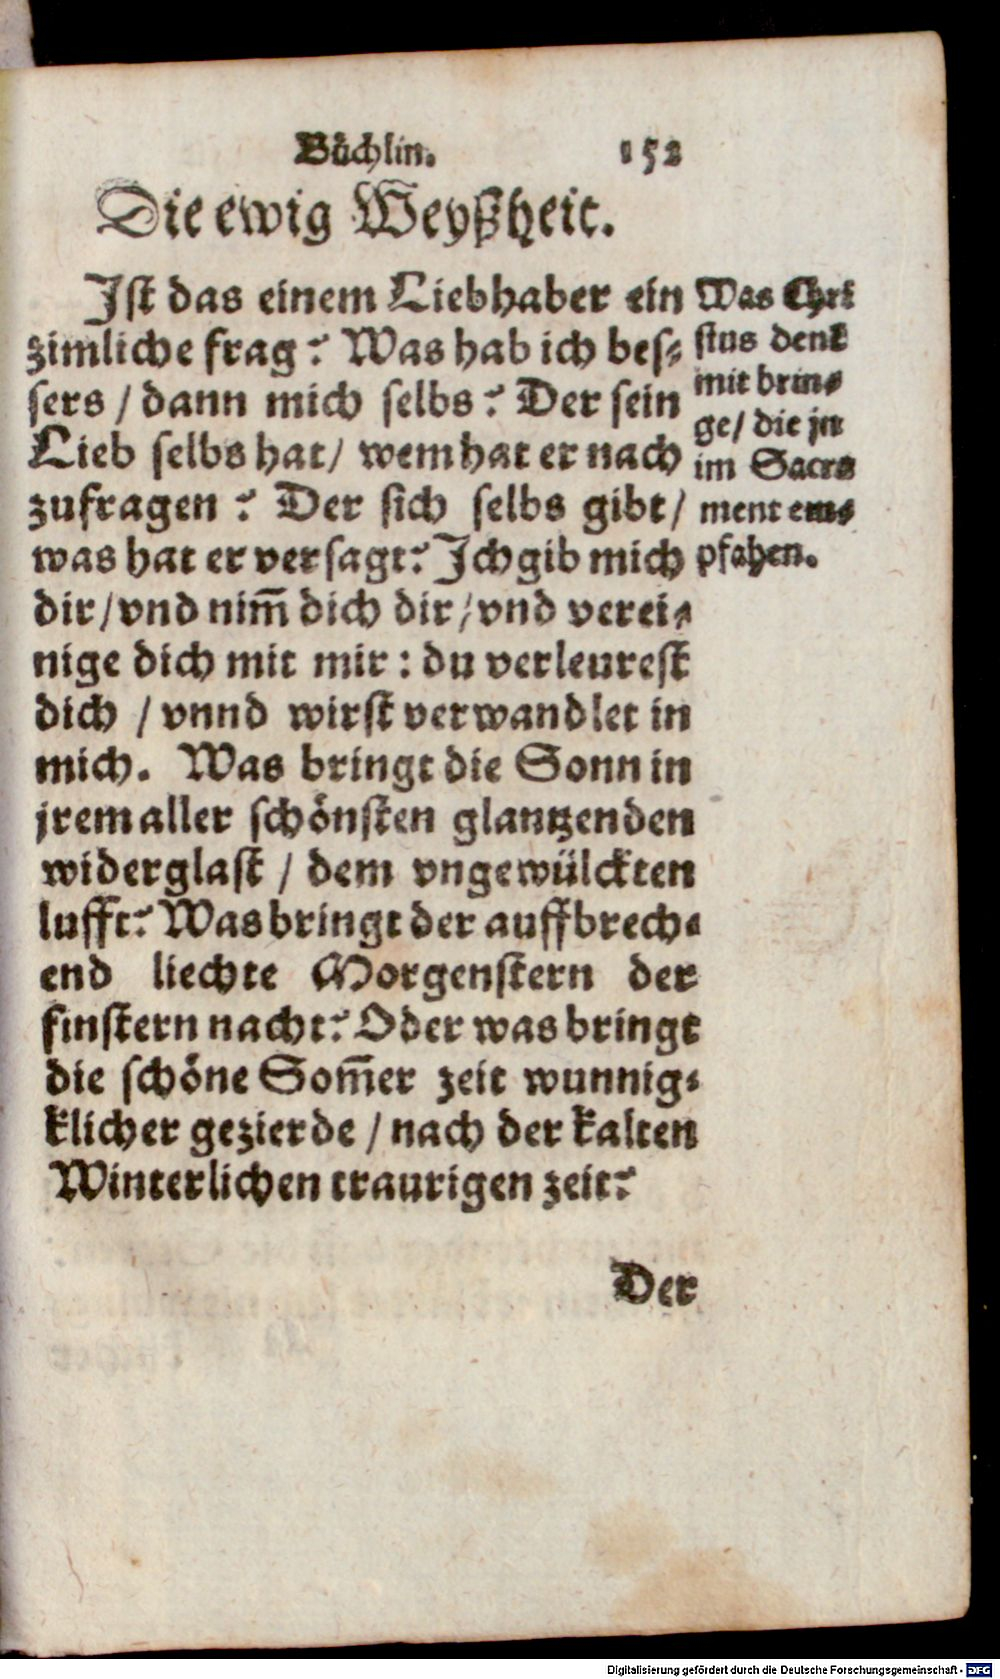 Büchlin. 152
Die ewig Weyßheit.
Ist das einem Liebhaber ein
zimliche frag? Was hab ich bes-
sers / dann mich selbs? Der sein
Lieb selbs hat / wem hat er nach
zufragen? Der sich selbs gibt /
was hat er versagt? Ich gib mich
dir / vnd nim̄ dich dir / vnd verei-
nige dich mit mir: du verleurest
dich / vnnd wirst verwandlet in
mich. Was bringt die Sonn in
jrem aller schönsten glantzenden
widerglast / dem vngewülckten
lufft? Was bringt der auffbrech-
end liechte Morgenstern der
finstern nacht? Oder was bringt
die schöne Som̄er zeit wunnig-
klicher gezierde / nach der kalten
Winterlichen traurigen zeit?
Was Chri
stus denē
mit brin-
ge / die jn
im Sacra
ment em-
pfahen.
Der
Digitalisierung gefördert durch die Deutsche Forschungsgemeinschaft - DFG